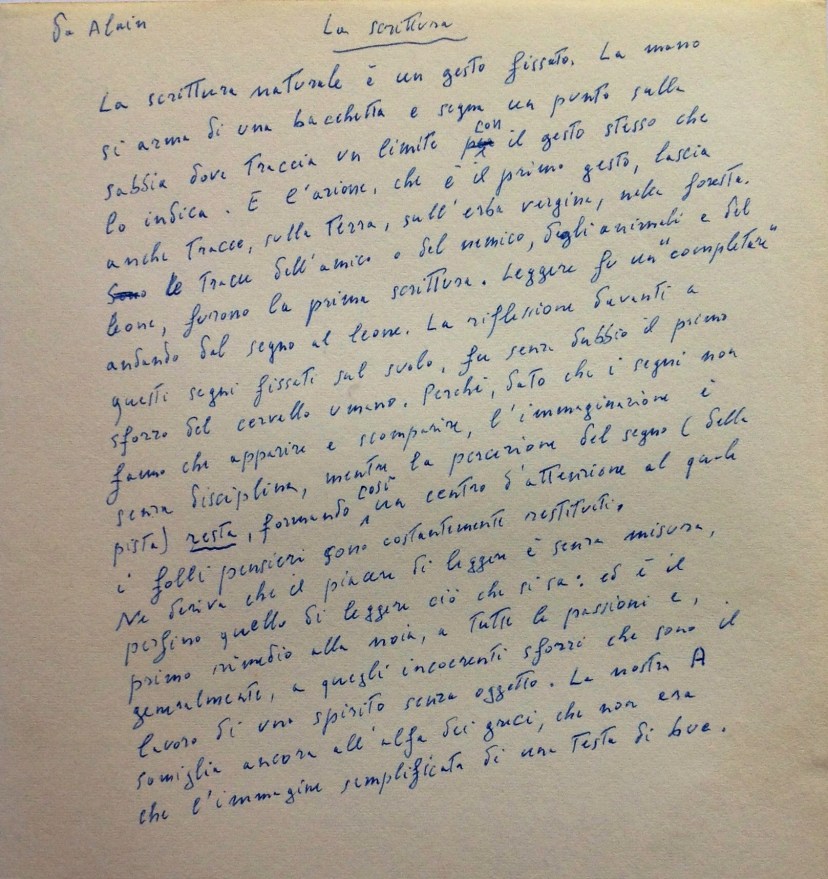 da Alain
La scrittura
La scrittura naturale è un gesto fissato. La mano
si arma di una bacchetta e segna un punto sulla
sabbia dove traccia un limite con il gesto stesso che
lo indica. E l'azione, che è il primo gesto, lascia
anche tracce, sulla terra, sull'erba vergine, nella foresta.
Sono le tracce dell'amico o del nemico, degli animali e del
leone, furono la prima scrittura. Leggere fu un "completare"
andando dal segno al leone. La riflessione davanti a
questi segni fissati sul suolo, fu senza dubbio il primo
sforzo del cervello umano. Perché, dato che i segni non
fanno che apparire e scomparire, l'immaginazione è
senza disciplina, mentre la percezione del segno (della
pista) resta, formando così un centro d'attenzione al quale
i folli pensieri sono costantemente restituiti.
Ne deriva che il piacere di leggere è senza misura,
perfino quello di leggere ciò che si sa: ed è il
primo rimedio alla noia, a tutte le passioni e,
generalmente, a quegli incoerenti sforzi che sono il
lavoro di uno spirito senza oggetto. La nostra A
somiglia ancora all'alfa dei greci, che non era
che l'immagine semplificata di una testa di bue.